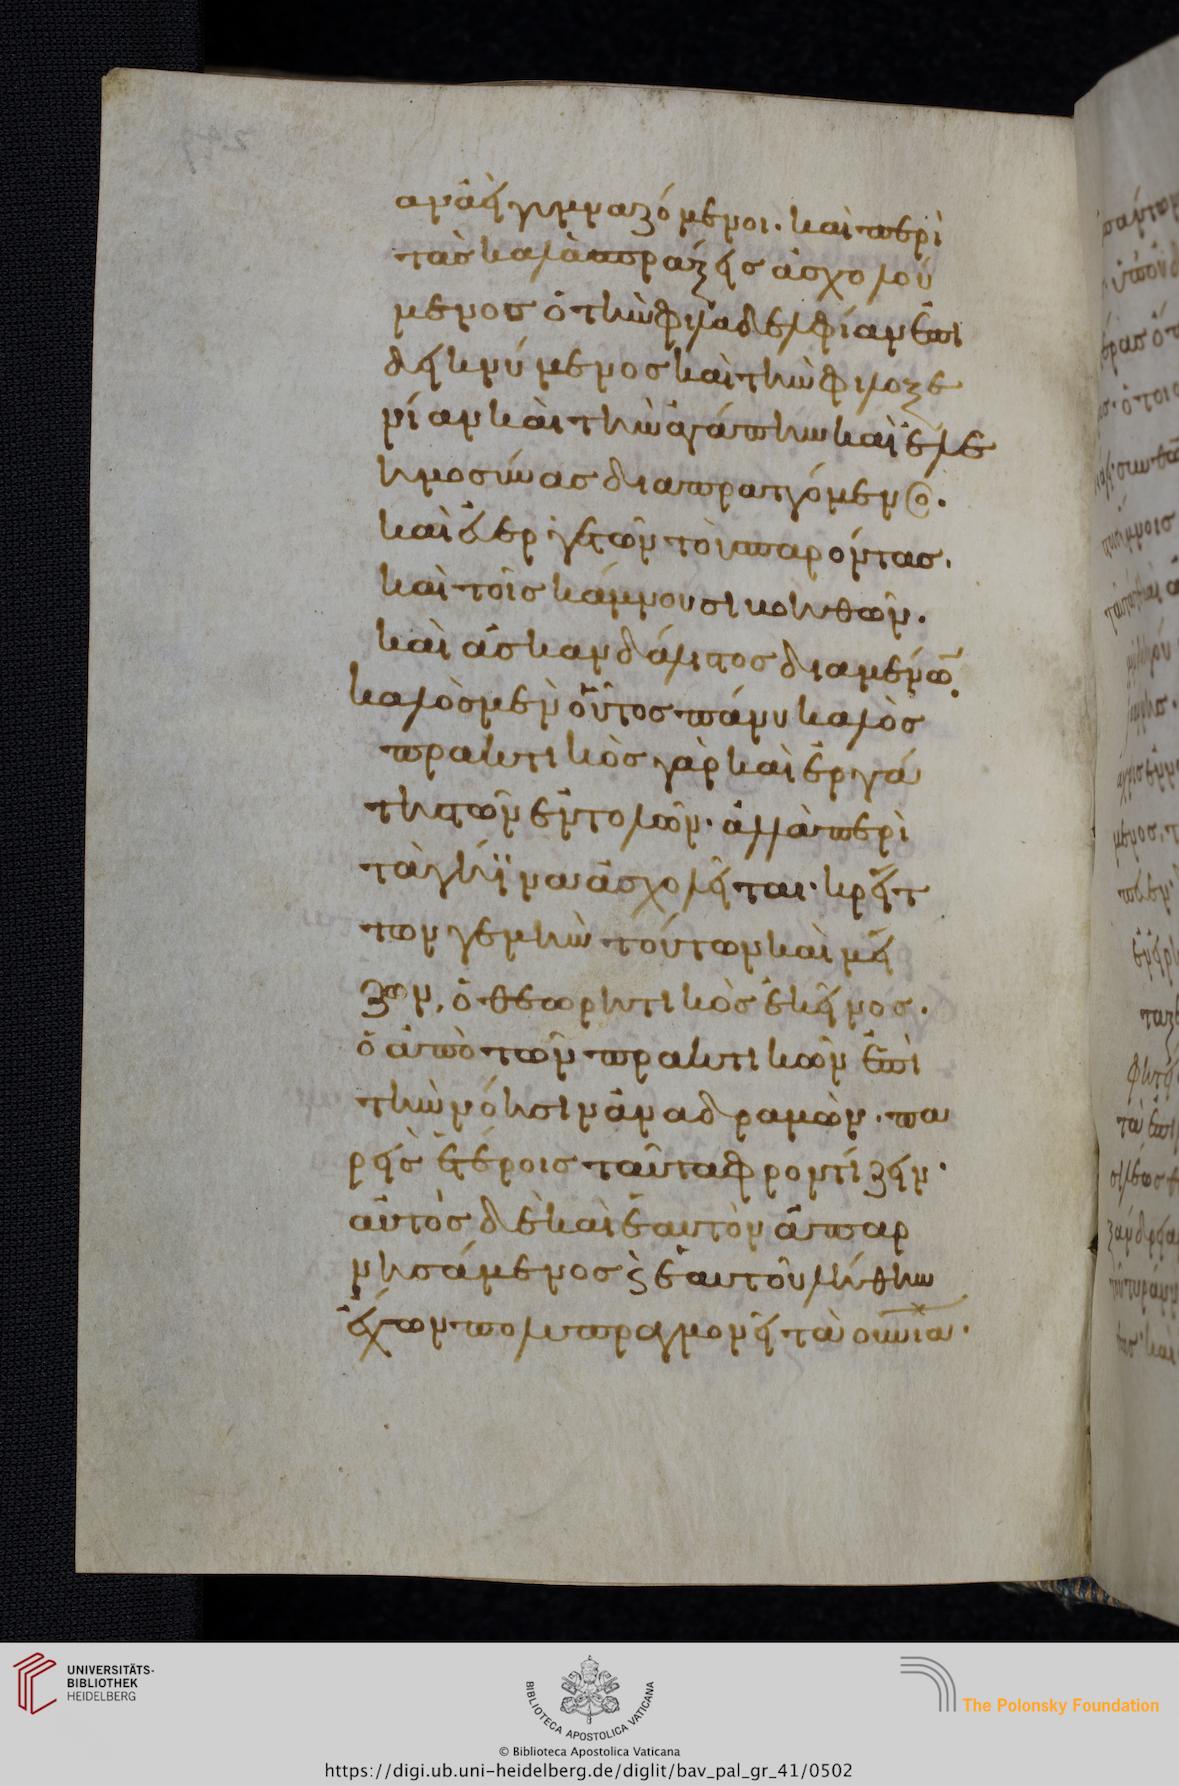 αν ἀεὶ γυμναζόμενοι. καὶ περὶ
τὰς καλὰς πράξεις ἀσχολού
μενος ὁ τὴν φιλαδελφίαν ἐπι
δεικνύμενος καὶ τὴν φιλοξε
νίαν καὶ τὴν ἀγάπην καὶ ἐλε
ημοσύνας διαπραττόμενος.
καὶ εὐεργετῶν τοὺς παρόντας.
καὶ τοῖς κάμνουσι βοηθῶν.
καὶ ἀσκανδάλιστος διαμένων.
καλὸς μὲν οὗτος πάνυ καλὸς
πρακτικὸς γὰρ καὶ ἐργά
της τῶν ἐντολῶν. ἀλλὰ περὶ
τὰ γήϊνα ἀσχολεῖται. κρεῖτ
των γε μὴν τούτων καὶ μεί
ζων, ὁ θεωρητικὸς ἐκεῖνος.
ὁ ἀπὸ τῶν πρακτικῶν ἐπὶ
τὴν νόησιν ἀναδραμὼν. πα
ρεὶς ἑτέροις ταῦτα φροντίζειν.
αὐτὸς δὲ καὶ ἑαυτὸν ἀπαρ
νησάμενος ϛ ἑαυτοῦ λήθην
ἔχων πολυπραγμονεῖ τὰ οὐνία.
UNIVERSITÄTS-
BIBLIOTHEK
HEIDELBERG
BIBLIOTECA APOSTOLICA VATICANA
© Biblioteca Apostolica Vaticana
The Polonsky Foundation
https://digi.ub.uni-heidelberg.de/diglit/bav_pal_gr_41/0502